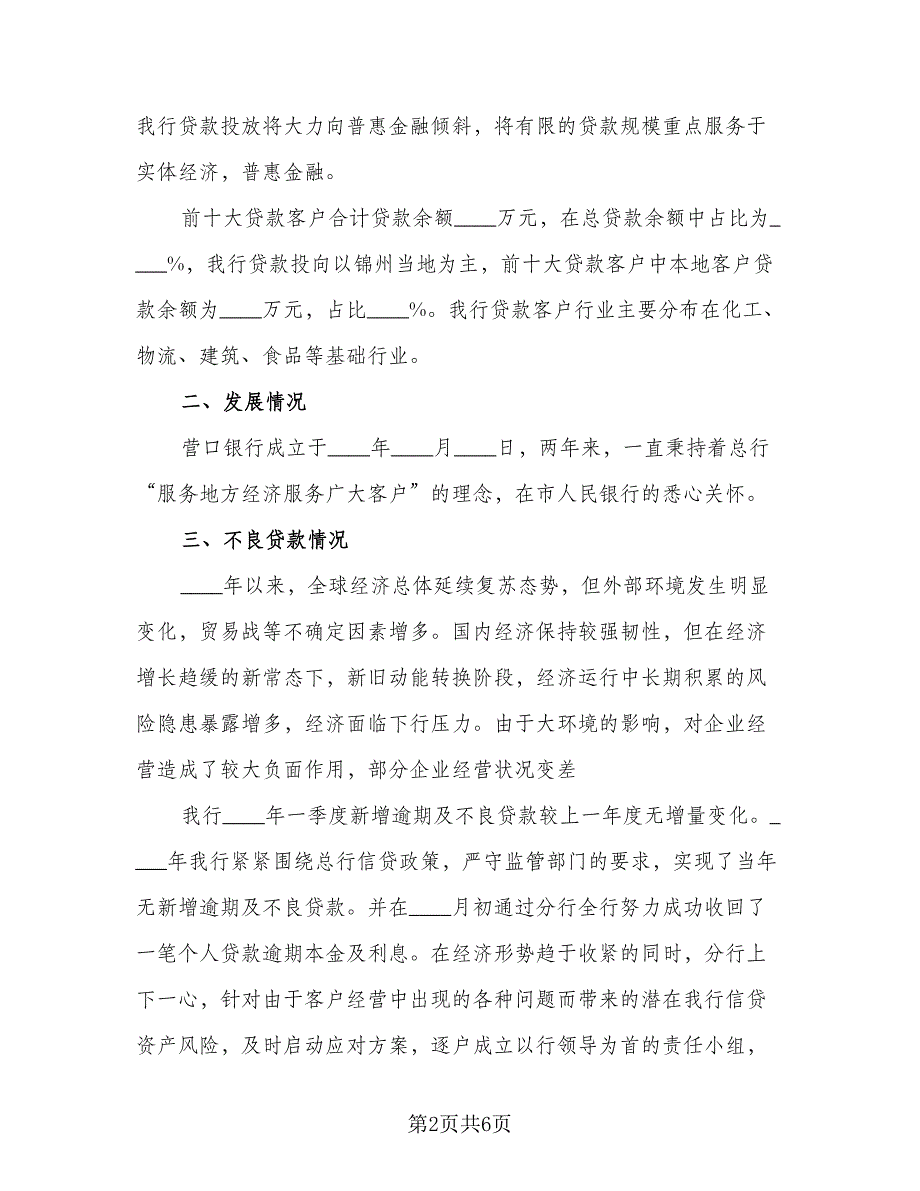 我行贷款投放将大力向普惠金融倾斜，将有限的贷款规模重点服务于
实体经济，普惠金融。
前十大贷款客户合计贷款余额____万元，在总贷款余额中占比为_
___%，我行贷款投向以锦州当地为主，前十大贷款客户中本地客户贷
款余额为____万元，占比____%。我行贷款客户行业主要分布在化工、
物流、建筑、食品等基础行业。
二、发展情况
营口银行成立于____年____月____日，两年来，一直秉持着总行
“服务地方经济服务广大客户”的理念，在市人民银行的悉心关怀。
三、不良贷款情况
____年以来，全球经济总体延续复苏态势，但外部环境发生明显
变化，贸易战等不确定因素增多。国内经济保持较强韧性，但在经济
增长趋缓的新常态下，新旧动能转换阶段，经济运行中长期积累的风
险隐患暴露增多，经济面临下行压力。由于大环境的影响，对企业经
营造成了较大负面作用，部分企业经营状况变差
我行____年一季度新增逾期及不良贷款较上一年度无增量变化。_
___年我行紧紧围绕总行信贷政策，严守监管部门的要求，实现了当年
无新增逾期及不良贷款。并在____月初通过分行全行努力成功收回了
一笔个人贷款逾期本金及利息。在经济形势趋于收紧的同时，分行上
下一心，针对由于客户经营中出现的各种问题而带来的潜在我行信贷
资产风险，及时启动应对方案，逐户成立以行领导为首的责任小组，
第2页共6页